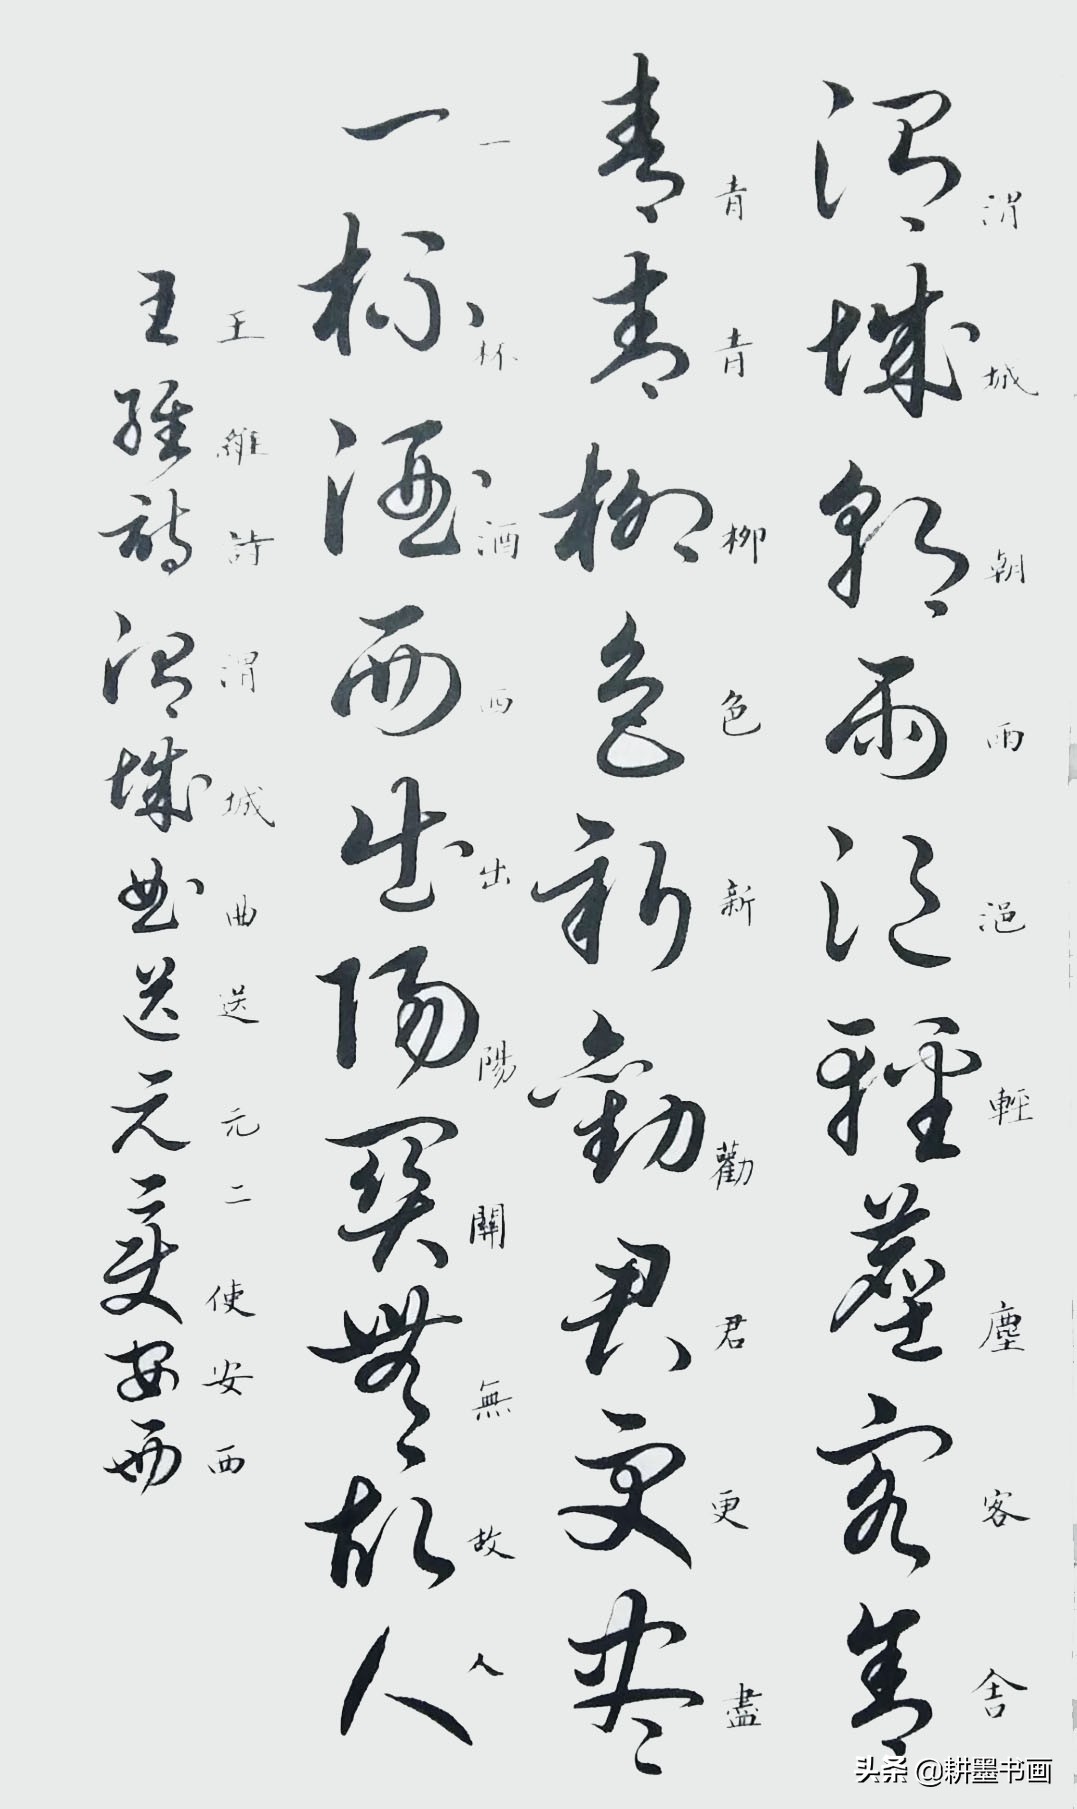 渭城朝雨浥輕塵客舍
渭城朝雨浥輕塵客舍
青青柳色新勸君更盡
青青柳色新勸君更盡
一杯酒西出陽關無故人
一杯酒西出陽關無故人
王維詩渭城曲送元二使安西
王維詩渭城曲送元二使安西
头条 @耕墨书画